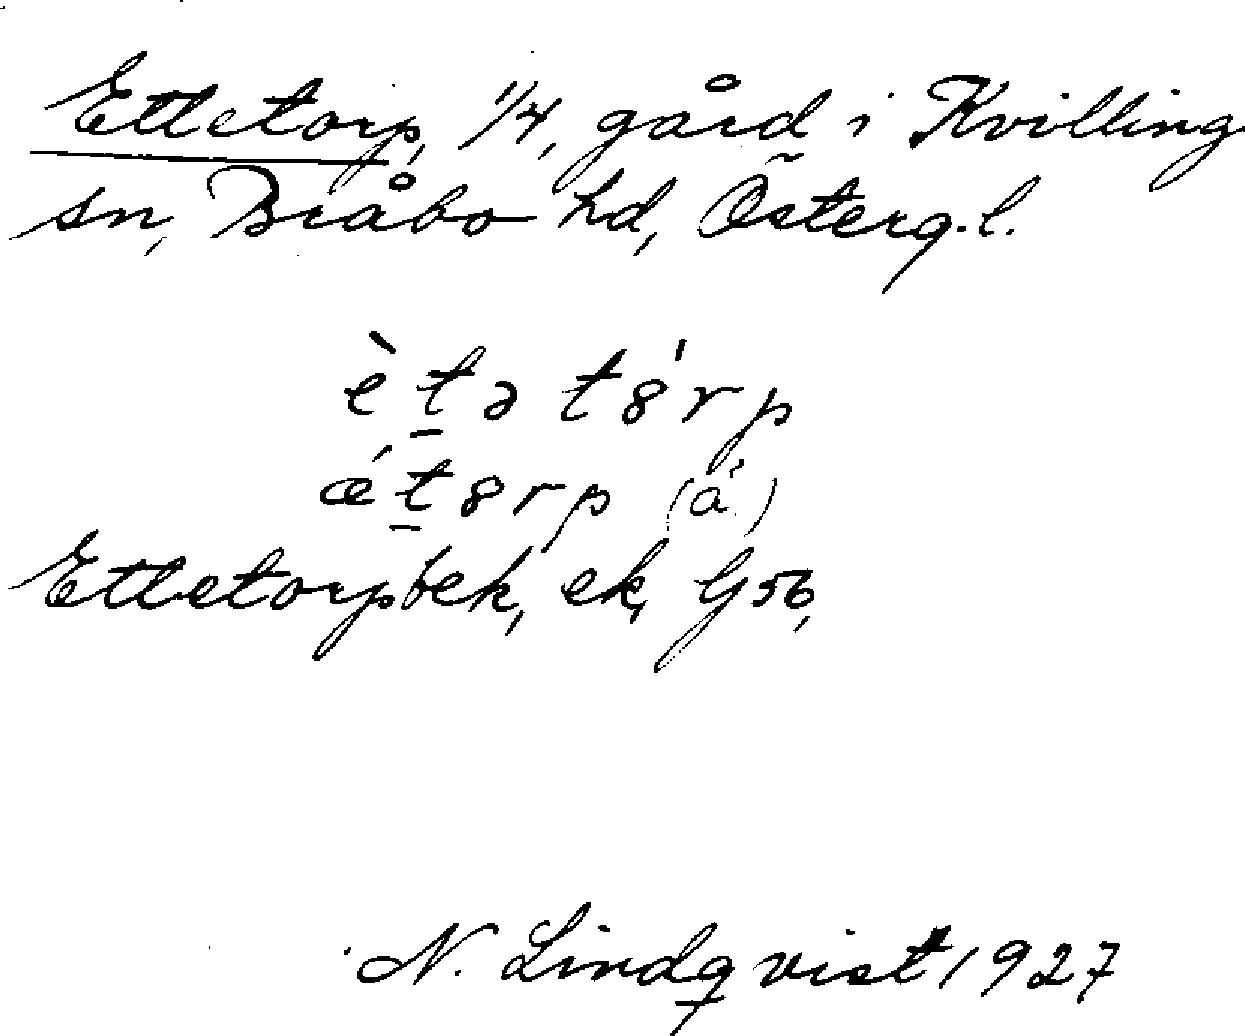 Ettetorp, 1/4, gård i Kvilling
sn, Bråbo hd, Österg.l.
è t̠ ə t 8́ r p
ǽ t̠ 8 r p (á)
Ettetorp bek, ek, G 56,
N. Lindqvist 1927